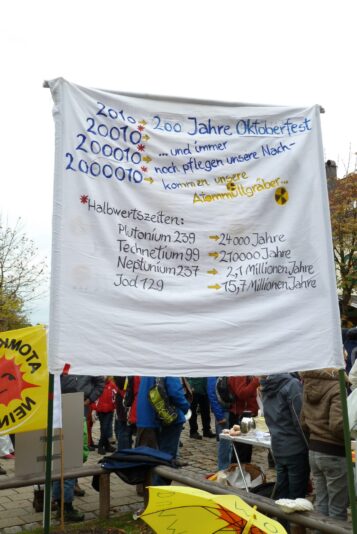 2010 → 200 Jahre Oktoberfest
20010* → ... und immer
200010* → noch pflegen unsere Nach-
2000010* → kommen unsere
Atommüllgräber...
*Halbwertszeiten:
Plutonium 239 → 24000 Jahre
Technetium 99 → 210000 Jahre
Neptunium 237 → 2,1 Millionen Jahre
Jod 129 → 15,7 Millionen Jahre
ATOMK
NEIN